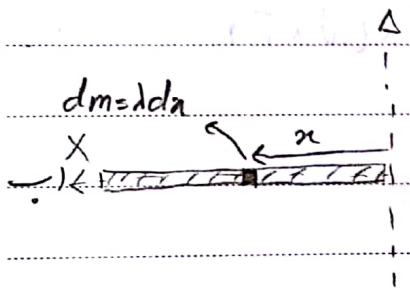 Δ
dm=λdx
x
X